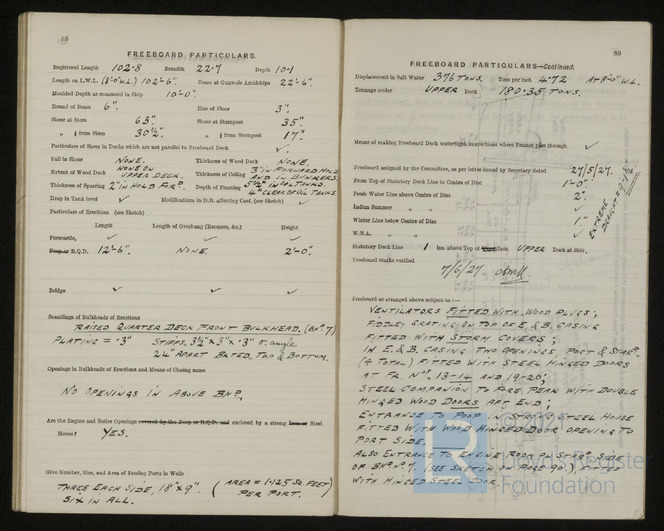 FREEBOARD PARTICULARS.
Registered Length 102·8 Breadth 22·7 Depth 10·1
Length on L.W.L. (8'-0" W.L.) 102'-6" Beam at Gunwale Amidships 22'-6"
Moulded Depth as measured in Ship 10'-0"
Round of Beam 6" Rise of Floor 3"
Sheer at Stem 63" Sheer at Sternpost 35"
" ⅛ from Stem 30½" " ⅛ from Sternpost 17"
Particulars of Sheer in Docks which are not parallel to Freeboard Deck ✓
Fall in Sheer NONE. Thickness of Wood Deck NONE.
Extent of Wood Deck NONE ON UPPER DECK. Thickness of Ceiling 3" IN FORWARD HOLD AND IN BUNKERS
Thickness of Sparring 2" IN HOLD FOR? Depth of Framing 5½" IN OIL TANKS. 4" CLEAR OF OIL TANKS
Drop in Tank level ✓ Modifications in D.B. affecting Coef. (see Sketch) ✓
Particulars of Erections (see Sketch)
Length Length of Overhang (Recesses, &c.) Height
Forecastle, ✓ ✓
Poop or R.Q.D. 12'-6" NONE. 2'-0"
Bridge ✓ ✓ ✓
Scantlings of Bulkheads of Erections
RAISED QUARTER DECK FRONT BULKHEAD. (BHD 7)
PLATING = ·3" STIFFS. 3½" × 3" × ·3" angle
24" APART BKTED, TOP & BOTTOM.
Openings in Bulkheads of Erections and Means of Closing same
NO OPENINGS IN ABOVE BHD,
Are the Engine and Boiler Openings covered by the Poop or R.Q.D. and enclosed by a strong Iron or Steel
House? YES.
Give Number, Size, and Area of Freeing Ports in Wells
THREE EACH SIDE, 18" × 9" (AREA = 1·125 SQ. FEET PER PORT.)
SIX IN ALL.
89
FREEBOARD PARTICULARS—Continued.
Displacement in Salt Water 376 TONS. Tons per inch 4·72 AT 8'-0" W.L.
Tonnage under UPPER Deck 180·35 TONS.
Means of making Freeboard Deck watertight in spaces where Frames pass through ✓
Freeboard assigned by the Committee, as per letter issued by Secretary dated 27/5/27.
From Top of Statutory Deck Line to Centre of Disc 1'-0"
Fresh Water Line above Centre of Disc 2"
Indian Summer " " ✓
Winter Line below Centre of Disc 1"
W.N.A. " " ✓
EXTREME DRAUGHT
Statutory Deck Line 1 ins. above Top of Wood Iron UPPER Deck at Side,
Freeboard marks verified
7/6/27
Freeboard as arranged above subject to :—
VENTILATORS FITTED WITH WOOD PLUGS;
FIDDLEY GRATING ON TOP OF E. & B. CASING
FITTED WITH STORM COVERS;
IN E. & B. CASING TWO OPENINGS, PORT & STARD.
(4 TOTAL) FITTED WITH STEEL HINGED DOORS
AT FR NOS. 13-14 AND 19-20;
STEEL COMPANION TO FORE PEAK WITH DOUBLE
HINGED WOOD DOORS AFT END;
ENTRANCE TO POOP IN STRONG STEEL HOUSE
FITTED WITH WOOD HINGED DOOR OPENING TO
PORT SIDE.
ALSO ENTRANCE TO ENGINE ROOM ON STARD SIDE
OF BHD No 7. (SEE SKETCH ON PAGE 90.) FITTED
WITH HINGED STEEL DOOR.
Lloyd's Register
Foundation